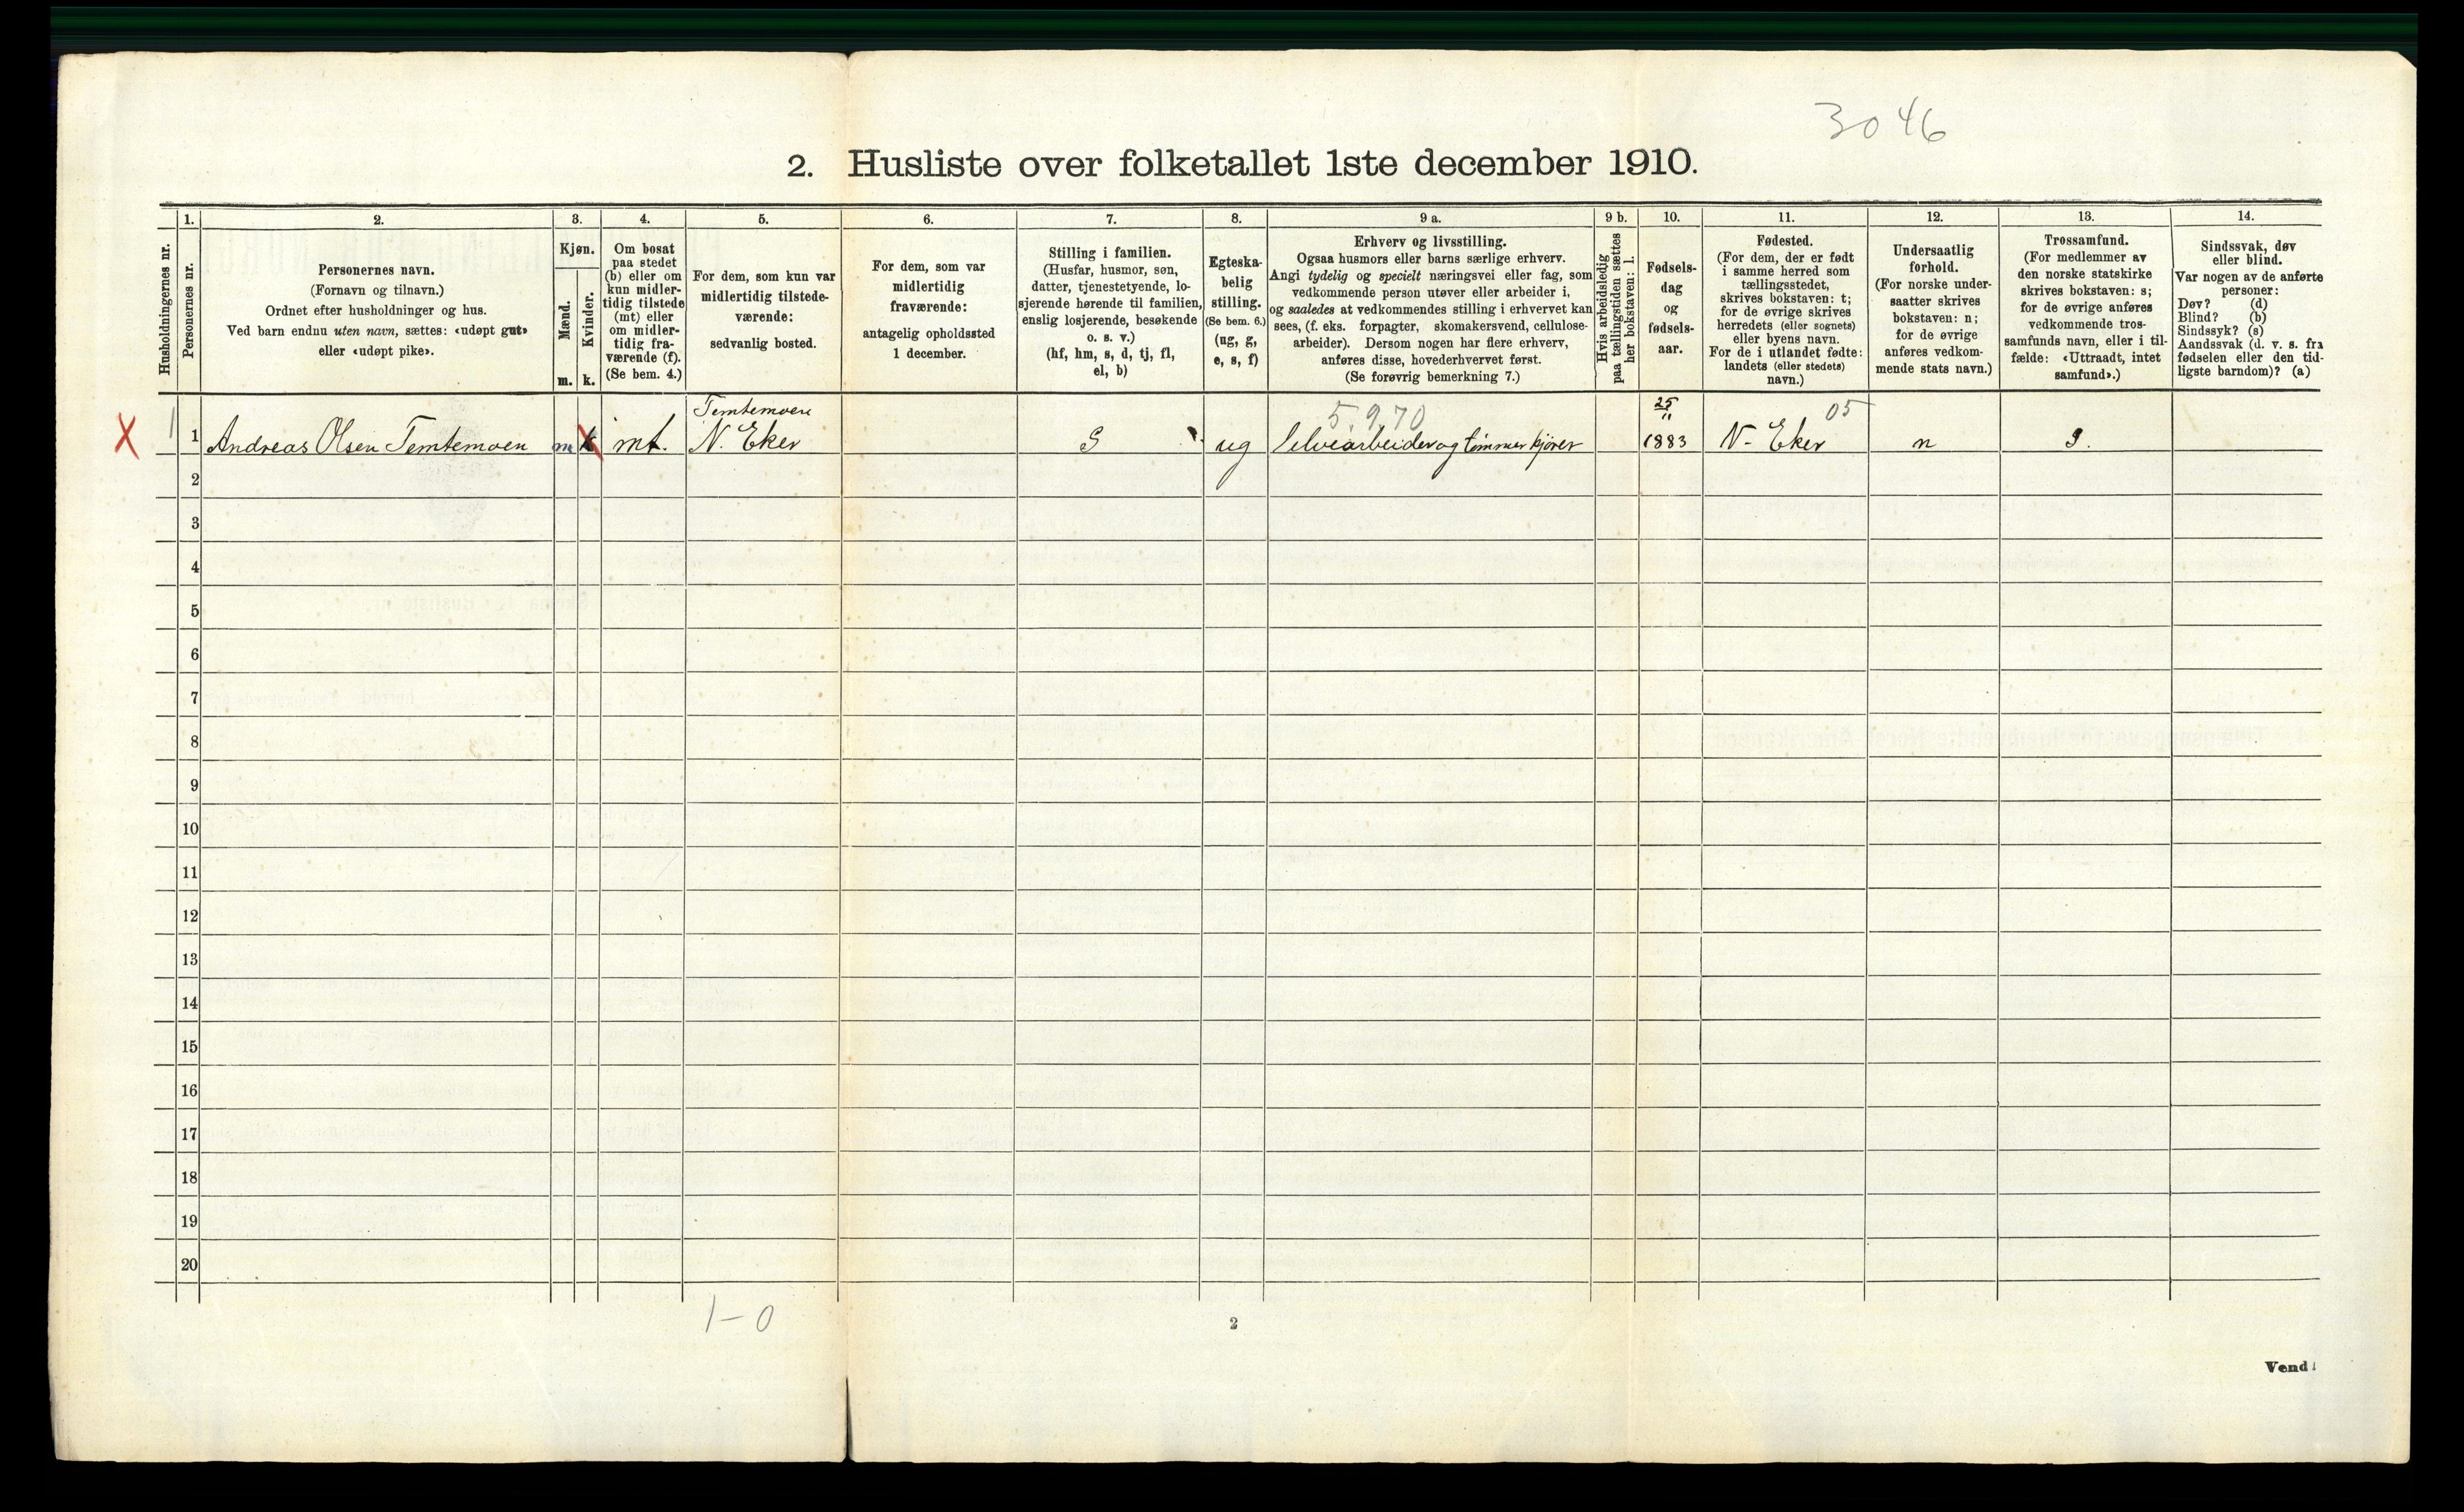 3046
2. Husliste over folketallet 1ste december 1910.
Husholdningernes nr.
1.
Personernes nr.
2.
Personernes navn.
(Fornavn og tilnavn.)
Ordnet efter husholdninger og hus.
Ved barn endnu uten navn, sættes: «udøpt gut»
eller «udøpt pike».
3.
Kjøn.
Mænd.
m.
Kvinder.
k.
4.
Om bosat
paa stedet
(b) eller om
kun midler-
tidig tilstede
(mt) eller
om midler-
tidig fra-
værende (f).
(Se bem. 4.)
5.
For dem, som kun var
midlertidig tilstede-
værende:
sedvanlig bosted.
6.
For dem, som var
midlertidig
fraværende:
antagelig opholdssted
1 december.
7.
Stilling i familien.
(Husfar, husmor, søn,
datter, tjenestetyende, lo-
sjerende hørende til familien,
enslig losjerende, besøkende
o. s. v.)
(hf, hm, s, d, tj, fl,
el, b)
8.
Egteska-
belig
stilling.
(Se bem. 6.)
(ug, g,
e, s, f)
9 a.
Erhverv og livsstilling.
Ogsaa husmors eller barns særlige erhverv.
Angi tydelig og specielt næringsvei eller fag, som
vedkommende person utøver eller arbeider i,
og saaledes at vedkommendes stilling i erhvervet kan
sees, (f. eks. forpagter, skomakersvend, cellulose-
arbeider). Dersom nogen har flere erhverv,
anføres disse, hovederhvervet først.
(Se forøvrig bemerkning 7.)
9 b.
Hvis arbeidsledig
paa tællingstiden sættes
her bokstaven: l.
10.
Fødsels-
dag
og
fødsels-
aar.
11.
Fødested.
(For dem, der er født
i samme herred som
tællingsstedet,
skrives bokstaven: t;
for de øvrige skrives
herredets (eller sognets)
eller byens navn.
For de i utlandet fødte:
landets (eller stedets)
navn.)
12.
Undersaatlig
forhold.
(For norske under-
saatter skrives
bokstaven: n;
for de øvrige
anføres vedkom-
mende stats navn.)
13.
Trossamfund.
(For medlemmer av
den norske statskirke
skrives bokstaven: s;
for de øvrige anføres
vedkommende tros-
samfunds navn, eller i til-
fælde: «Uttraadt, intet
samfund».)
14.
Sindssvak, døv
eller blind.
Var nogen av de anførte
personer:
Døv? (d)
Blind? (b)
Sindssyk? (s)
Aandssvak (d. v. s. fra
fødselen eller den tid-
ligste barndom)? (a)
Temtemoen 5.970 25/11 05
X 1 1 Andreas Olsen Temtemoen m k mt. N. Eker S ug Elvearbeider og tømmerkjører 1883 N- Eker n S.
2
3
4
5
6
7
8
9
10
11
12
13
14
15
16
17
18
19
20
1-0
2
Vend!